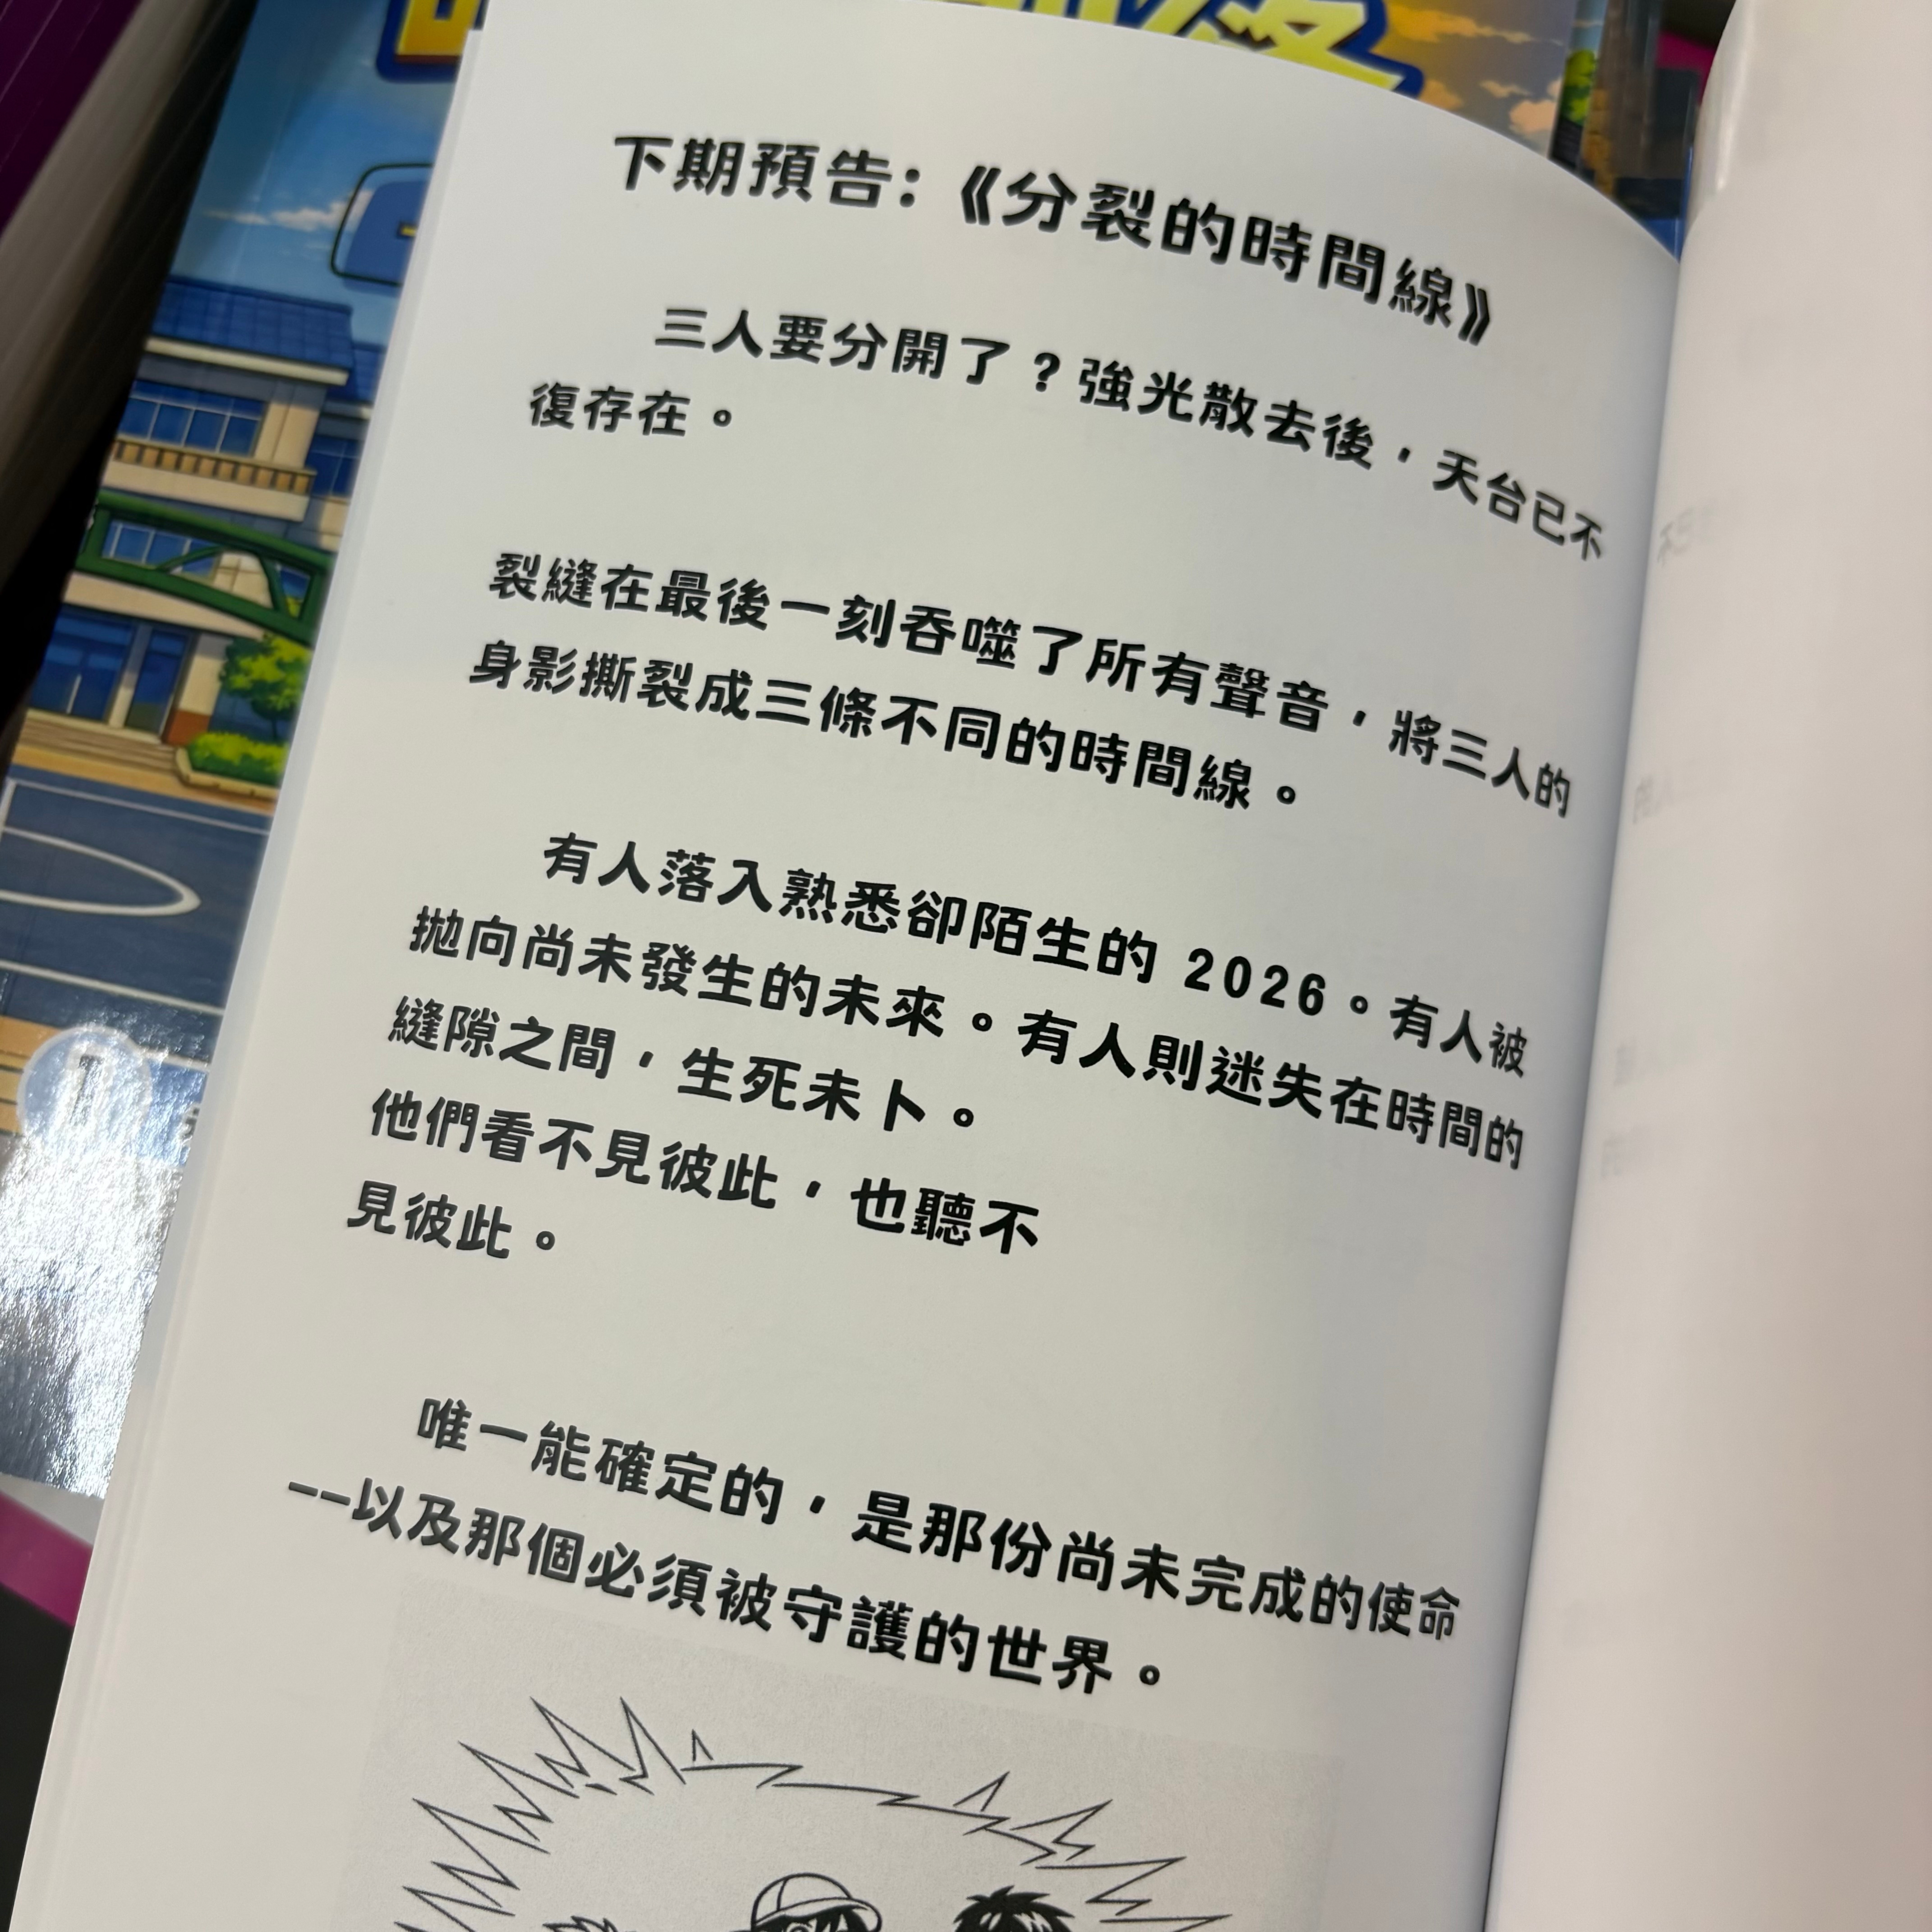 下期預告:《分裂的時間線》
三人要分開了？強光散去後，天台已不
復存在。
裂縫在最後一刻吞噬了所有聲音，將三人的
身影撕裂成三條不同的時間線。
有人落入熟悉卻陌生的 2026。有人被
拋向尚未發生的未來。有人則迷失在時間的
縫隙之間，生死未卜。
他們看不見彼此，也聽不
見彼此。
唯一能確定的，是那份尚未完成的使命
--以及那個必須被守護的世界。